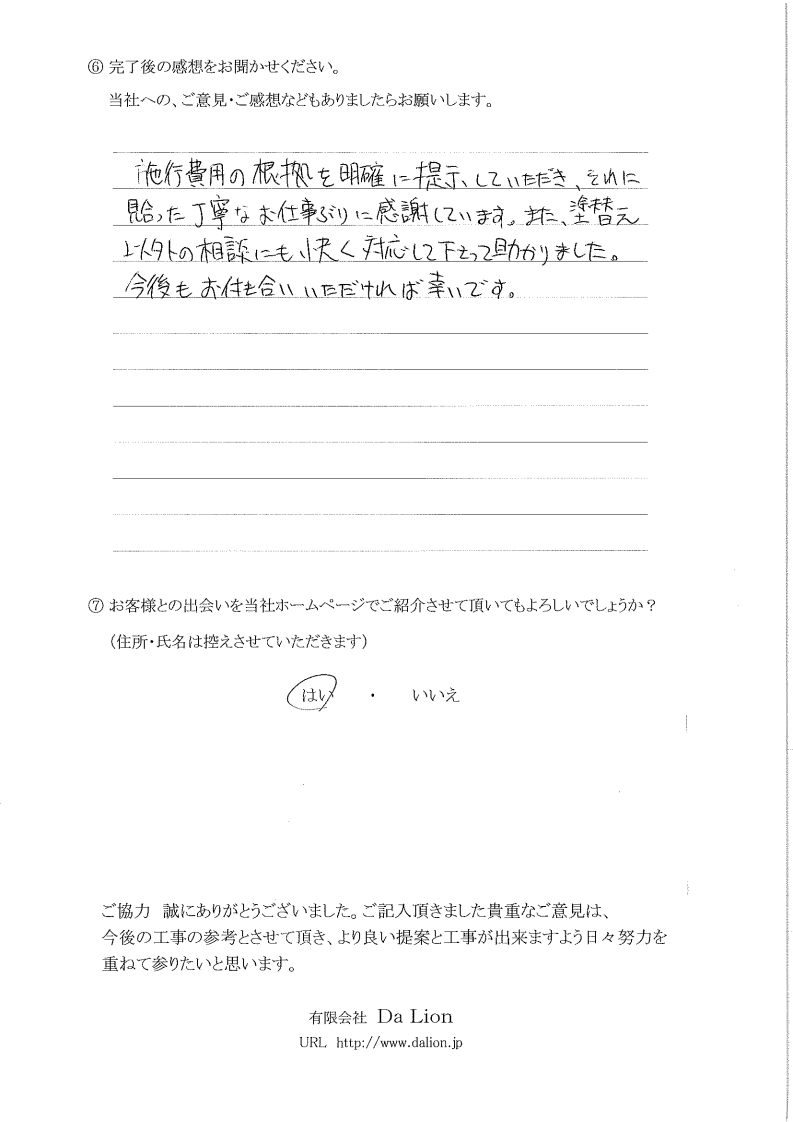 ⑥ 完了後の感想をお聞かせください。
当社への、ご意見・ご感想などもありましたらお願いします。
施行費用の根拠を明確に提示していただき、それに
見合った丁寧なお仕事ぶりに感謝しています。また、塗替え
以外の相談にも快く対応して下さって助かりました。
今後もお付き合いいただければ幸いです。
⑦ お客様との出会いを当社ホームページでご紹介させて頂いてもよろしいでしょうか？
（住所・氏名は控えさせていただきます）
はい ・ いいえ
ご協力 誠にありがとうございました。ご記入頂きました貴重なご意見は、
今後の工事の参考とさせて頂き、より良い提案と工事が出来ますよう日々努力を
重ねて参りたいと思います。
有限会社 Da Lion
URL http://www.dalion.jp